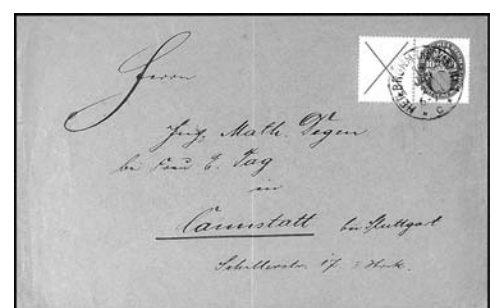 10
HEILBRONN
C
Herrn
Ing. Math. Degen
bei Frau E. Tag
in
Cannstatt bei Stuttgart
Schillerstr. 17 3 Stock.